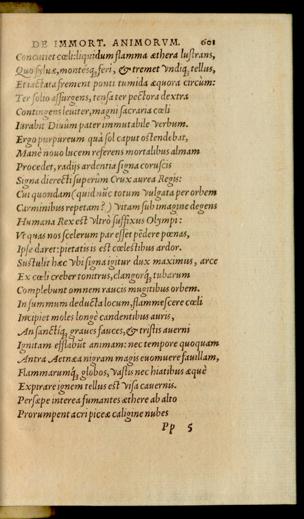 DE IMMORT. ANIMORVM. 601
Concutiet cœli: liquidum flamma æthera lustrans,
Quo sylvæ, montesq́, feri, & tremet vndiq, tellus,
Et iactata frement ponti tumida æquora circùm:
Ter solio assurgens, tensa ter pectora dextra
Contingens leuiter, magni sacraria cœli
Iurabit Diuùm pater immutabile verbum.
Ergo purpureum quà sol caput ostendebat,
Manè nouo lucem referens mortalibus almam
Procedet, radijs ardentia signa coruscis
Signa dierecti superùm Crux aurea Regis:
Cui quondam (quid nũc totum vulgata per orbem
Carminibus repetam?) vitam sub imagine degens
Humana Rex est vltrò suffixus Olympi:
Vt quas nos scelerum par esset pẽdere pœnas,
Ipse daret: pietatis is est cœlestibus ardor.
Sustulit hæc vbi signa igitur dux maximus, arce
Ex cœli creber tonitrus, clangorq́, tubarum
Complebunt omnem raucis mugitibus orbem.
In summum deducta locum, flammescere cœli
Incipiet moles longè candentibus auris,
An sanctiq́, graues fauces, & tristis auerni
Ignitam efflabũt animam: nec tempore quoquam
Antra Aetnæa nigram magis euomuere fauillam,
Flammarumq́, globos, vastis nec hiatibus æquè
Expirare ignem tellus est visa cauernis.
Persæpe interea fumantes æthere ab alto
Prorumpent acri piceæ caligine nubes
Pp 5